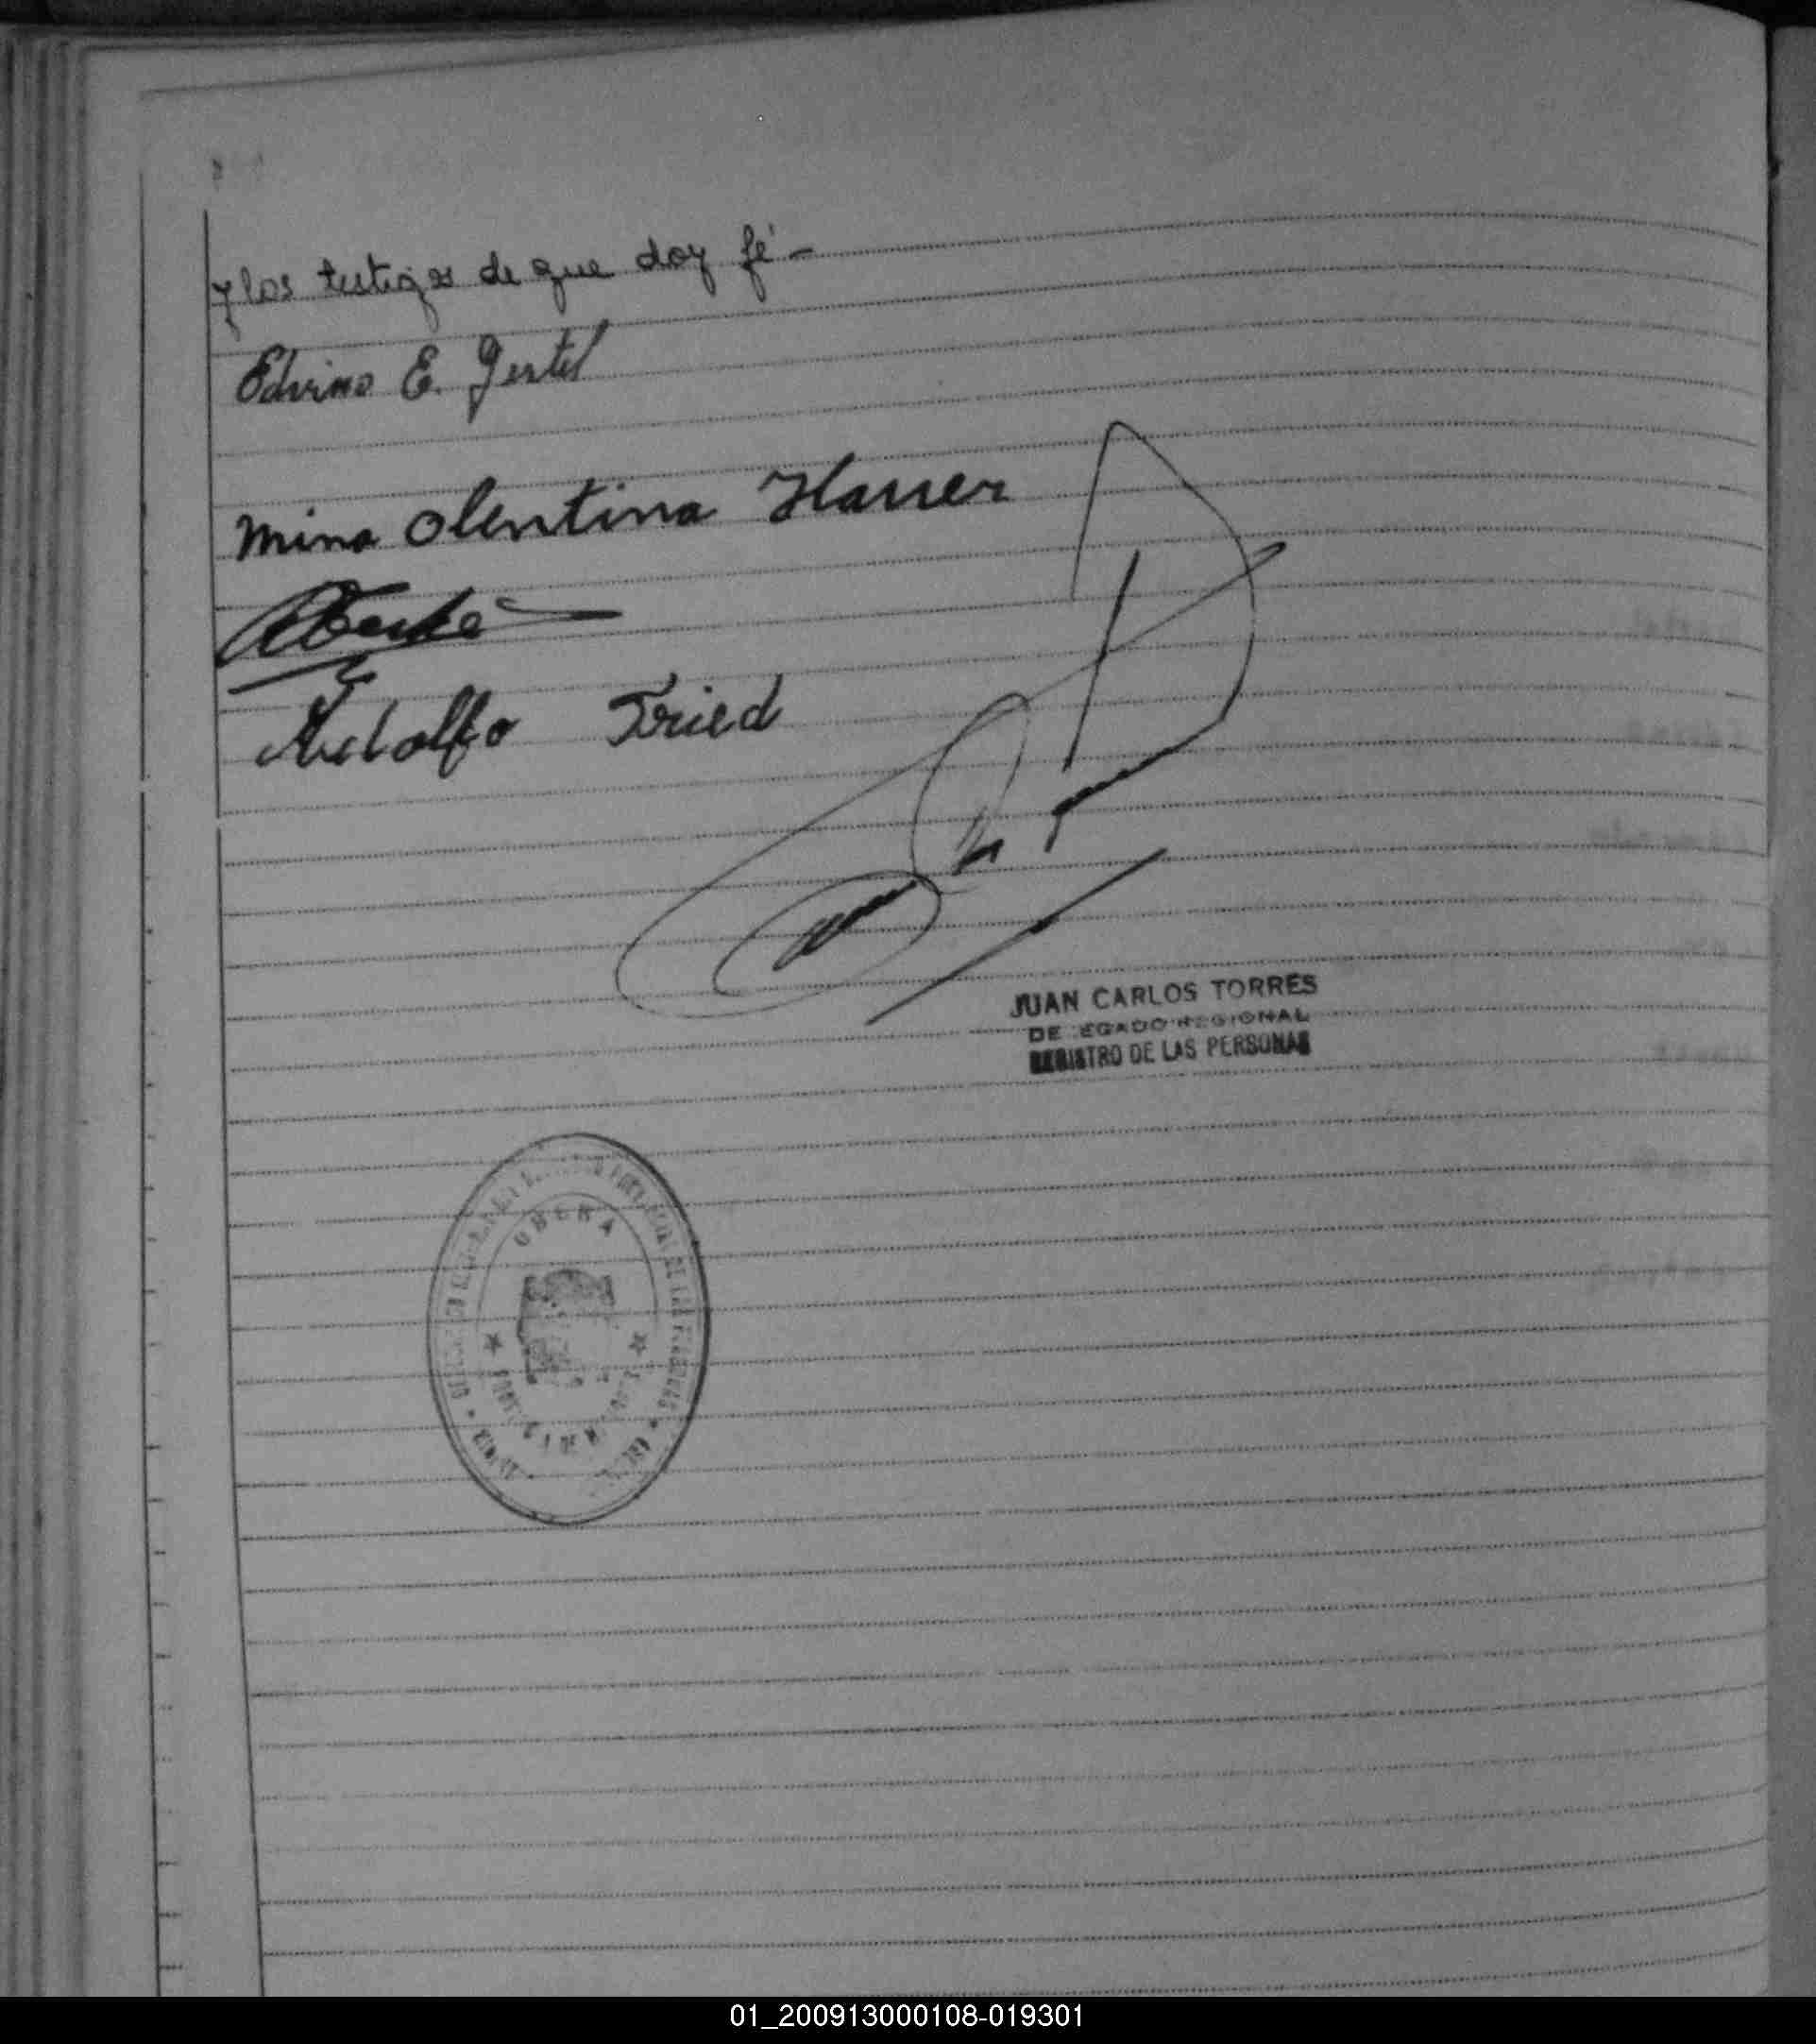 y los testigos de que doy fé -
Edvino E. Gertel
mina Olentina Hauer
Adolfo Fried
JUAN CARLOS TORRES
DELEGADO REGIONAL
REGISTRO DE LAS PERSONAS
OBERA
01_200913000108-019301